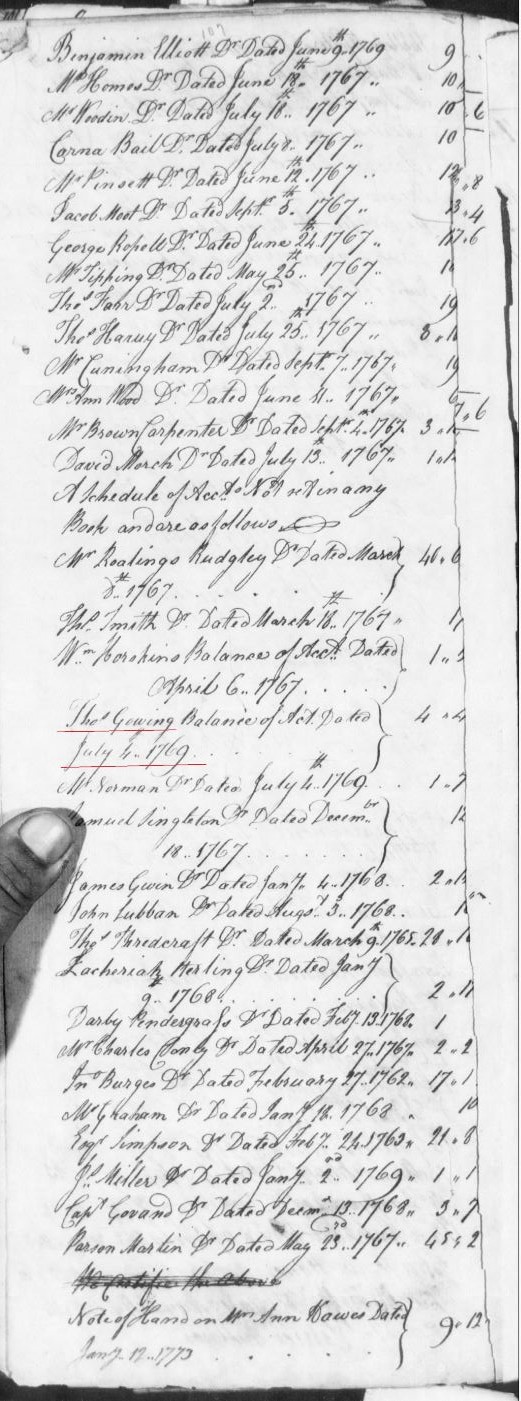 107
Benjamin Elliott Dr Dated June 9th 1769 9
Mr Homes Dr Dated June 18th 1767 10
Mr Woodin Dr Dated July 18th 1767 10 6
Carna Bail Dr Dated July 8 1767 10
Mr Pinsett Dr Dated June 12th 1767 12 8
Jacob Moot Dr Dated Septr 5th 1767 13 4
George Ropell Dr Dated June 24th 1767 17 6
Mr Tipping Dr Dated May 25th 1767
Thos Farr Dr Dated July 2nd 1767 19
Thos Harvy Dr Dated July 25th 1767 8
Mr Cuningham Dr Dated Septr 7 1767
Mrs Ann Wood Dr Dated June 1767
Mr Brown Carpenter Dr Dated Septr 4th 1767 3
David March Dr Dated July 13th 1767 1
A Schedule of Accts Not set in any
Book and are as follows
Mr Roalings Rudgley Dr Dated March 40 6
8th 1767
Thos Smith Dr Dated March 18th 1767
Wm Horskins Balance of Acct Dated 1
April 6 1767
Thos Gowing Balance of Act. Dated 4 4
July 4 1769
Mr Norman Dr Dated July 4th 1769 1 7
Samuel Singleton Dr Dated Decembr 12
18 1767
James Gwin Dr Dated Jany 4 1768 2
John Lubban Dr Dated Augst 3 1768
Thos Thredcraft Dr Dated March 9th 1765 28
Zacheriah Herling Dr Dated Jany
9th 1768 2 11
Darby Pendergrass Dr Dated Feby 13 1768 1
Mr Charles Coney Dr Dated April 27 1767 2 2
Jno Burges Dr Dated February 27 1762 17 1
Mr Graham Dr Dated Jany 18 1768 10
Esqr Simpson Dr Dated Feby 24 1763 21 8
Js Miller Dr Dated Jany 2nd 1769 1 1
Capt Govand Dr Dated Decemr 13 1768 3 7
Parson Martin Dr Dated May 23rd 1767 45 2
We Certifie the above
Note of Hand on Mrs Ann Hawes Dated 9 12
Jany 12 1773